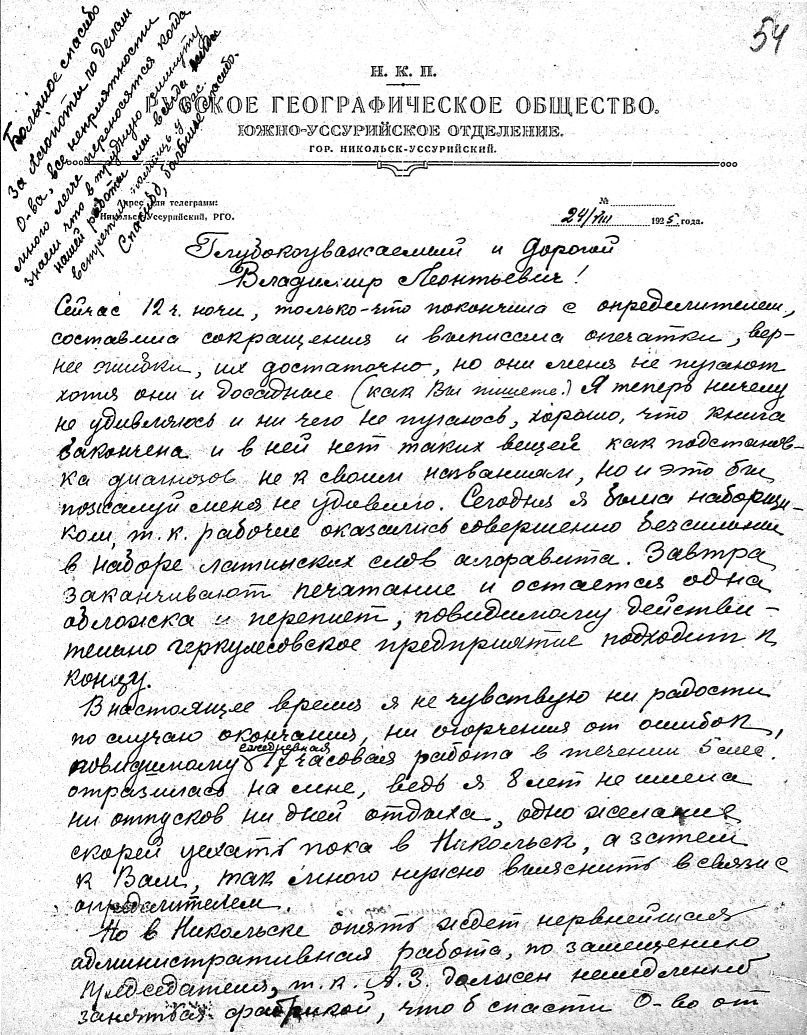 54
Большое спасибо
за хлопоты по делам
О-ва, все неприятности
много легче переносятся когда
знаем что в трудную минуту
нашей работы мы всегда
встретим помощь у Вас.
Спасибо, большое спасибо.
Н. К. П.
РУССКОЕ ГЕОГРАФИЧЕСКОЕ ОБЩЕСТВО.
ЮЖНО-УССУРИЙСКОЕ ОТДЕЛЕНИЕ.
ГОР. НИКОЛЬСК-УССУРИЙСКИЙ.
Адрес для телеграмм:
Никольск-Уссурийский, РГО.
№
24/VIII 1925 года.
Глубокоуважаемый и дорогой
Владимир Леонтьевич!
Сейчас 12 ч. ночи, только-что покончила с определителем,
составила сокращения и выписала опечатки, вер-
нее ошибки, их достаточно, но они меня не пугают
хотя они и досадные (как Вы пишете.) Я теперь ничему
не удивляюсь и ни чего не пугаюсь, хорошо, что книга
закончена и в ней нет таких вещей как подстанов-
ка диагнозов не к своим названиям, но и это бы
пожалуй меня не удивило. Сегодня я была наборщи-
ком, т. к. рабочие оказались совершенно безсильны
в наборе латинских слов алфавита. Завтра
заканчивают печатание и остается одна
обложка и переплет, повидимому действи-
тельно геркулесовское предприятие подходит к
концу.
В настоящее время я не чувствую ни радости
по случаю окончания, ни огорчения от ошибок,
повидимому ежедневная 17 часовая работа в течении 5 мес.
отразилась на мне, ведь я 8 лет не имела
ни отпусков ни дней отдыха, одно желание
скорей уехать пока в Никольск, а затем
к Вам, так много нужно выяснить в связи с
определителем.
Но в Никольске опять ждет нервнейшая
административная работа, по замещению
председателя, т. к. А. З. должен немедленно
заняться фабрикой, что б спасти О-во от